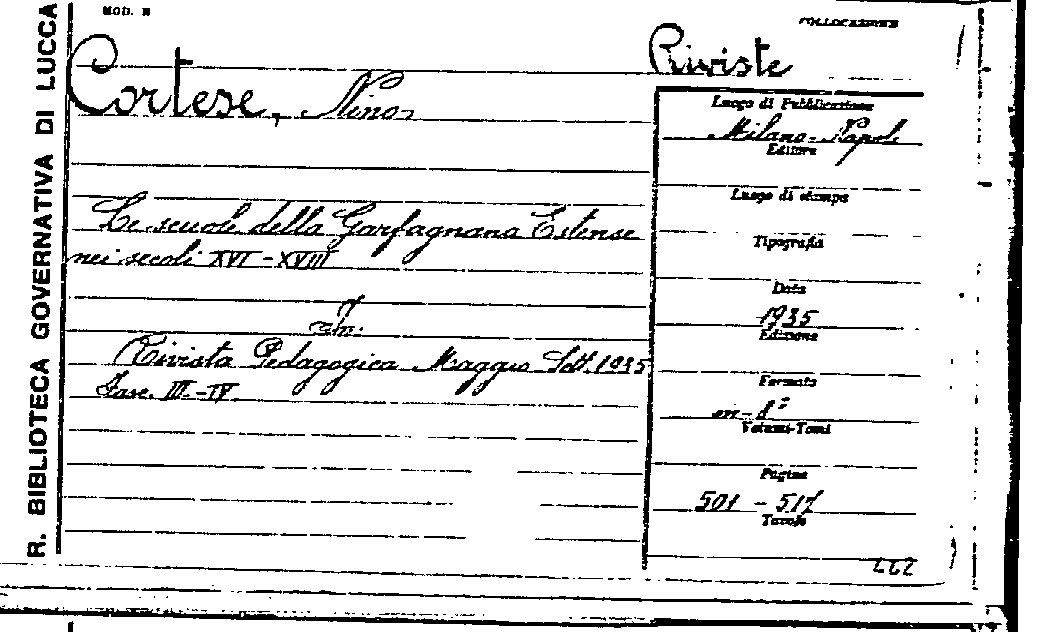 MOD. B
COLLOCAZIONE
R. BIBLIOTECA GOVERNATIVA DI LUCCA
Riviste
Cortese, Nino
Le scuole della Garfagnana Estense
nei secoli XVI - XVIII
In:
Rivista Pedagogica Maggio Sett. 1935
Fasc. III - IV.
Luogo di Pubblicazione
Milano - Napoli
Editore
Luogo di stampa
Tipografia
Data
1935
Edizione
Formato
in - 8°
Volumi-Tomi
Pagine
501 - 517
Tavole